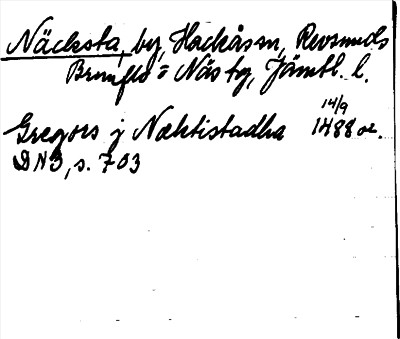 Näcksta, by, Hackås sn, Revsunds
Brunflo = Näs tg, Jämtl. l.
14/9
Gregors j Næktistadha 1488 or.
DN 3, s. 703